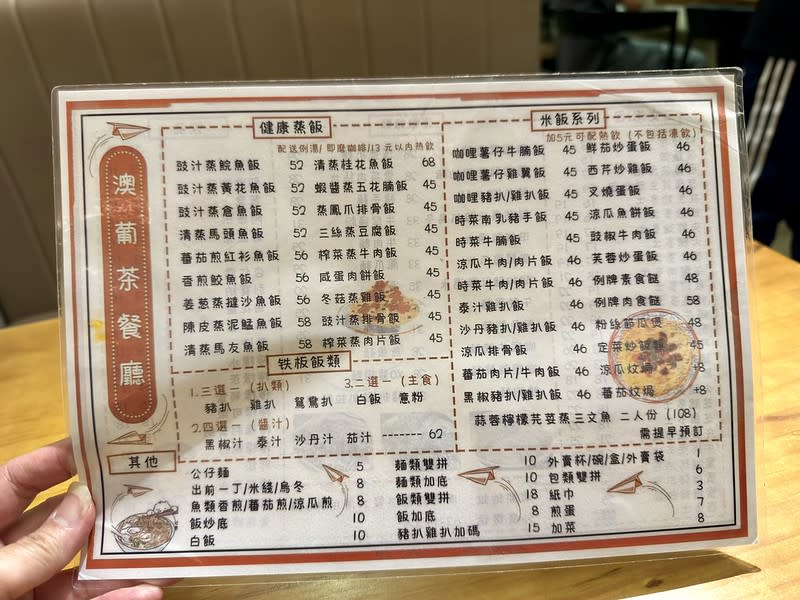 澳葡茶餐廳
健康蒸飯
配送例湯/即磨咖啡/13元以內熱飲
豉汁蒸鯇魚飯 52
豉汁蒸黃花魚飯 52
豉汁蒸倉魚飯 52
清蒸馬頭魚飯 52
蕃茄煎紅衫魚飯 56
香煎鮫魚飯 56
姜葱蒸撻沙魚飯 56
陳皮蒸泥鯭魚飯 58
清蒸馬友魚飯 58
清蒸桂花魚飯 68
蝦醬蒸五花腩飯 45
蒸鳳爪排骨飯 45
三絲蒸豆腐飯 45
榨菜蒸牛肉飯 45
咸蛋肉餅飯 45
冬菇蒸雞飯 45
豉汁蒸排骨飯 45
榨菜蒸肉片飯 45
铁板飯類
1.三選一(扒類)
豬扒 雞扒 鴛鴦扒
2.四選一(醬汁)
黑椒汁 泰汁 沙丹汁 茄汁 ------- 62
3.二選一(主食)
白飯 意粉
米飯系列
加5元可配熱飲(不包括凍飲)
咖哩薯仔牛腩飯 45
咖哩薯仔雞翼飯 45
咖哩豬扒/雞扒飯 45
時菜南乳豬手飯 45
時菜牛腩飯 45
涼瓜牛肉/肉片飯 46
時菜牛肉/肉片飯 46
泰汁雞扒飯 46
沙丹豬扒/雞扒飯 46
涼瓜排骨飯 46
蕃茄肉片/牛肉飯 46
黑椒豬扒/雞扒飯 46
鮮茄炒蛋飯 46
西芹炒雞飯 46
叉燒蛋飯 46
涼瓜魚餅飯 46
豉椒牛肉飯 46
芙蓉炒蛋飯 46
例牌素食餸 48
例牌肉食餸 58
粉絲節瓜煲 48
定菜炒飯 45
涼瓜炆焗 +8
蕃茄炆焗 +8
蒜蓉檸檬芫荽蒸三文魚 二人份(108)
需提早預訂
其他
公仔麵 5
出前一丁/米綫/烏冬 8
魚類香煎/蕃茄煎/涼瓜煎 8
飯炒底 10
白飯 10
麵類雙拼 10
麵類加底 10
飯類雙拼 18
飯加底 8
豬扒雞扒加碼 15
外賣杯/碗/盒/外賣袋 1
包類雙拼 6
紙巾 3
煎蛋 7
加菜 8